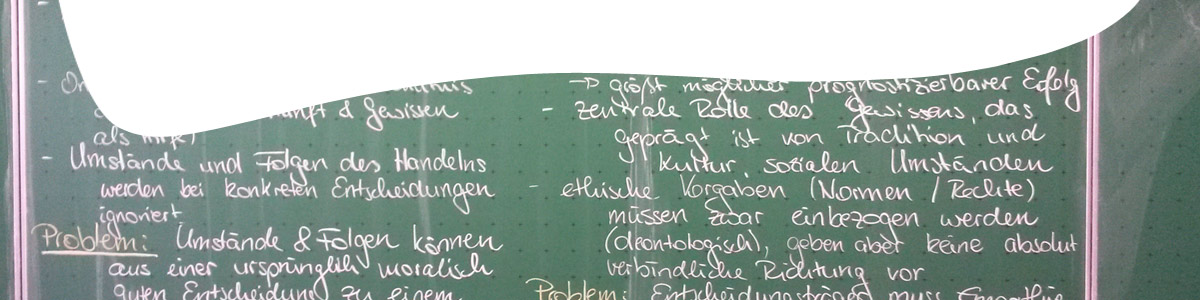 als
- Umstände und Folgen des Handelns
werden bei konkreten Entscheidungen
ignoriert
Problem: Umstände & Folgen können
aus einer ursprünglich moralisch
guten Entscheidung zu einem
→ größt möglicher prognostizierbarer Erfolg
- zentrale Rolle des Gewissens, das
geprägt ist von Tradition und
Kultur, sozialen Umständen
- ethische Vorgaben (Normen / Rechte)
müssen zwar einbezogen werden
(deontologisch), geben aber keine absolut
verbindliche Richtung vor
Problem: Entscheidungsträger muss Empathie